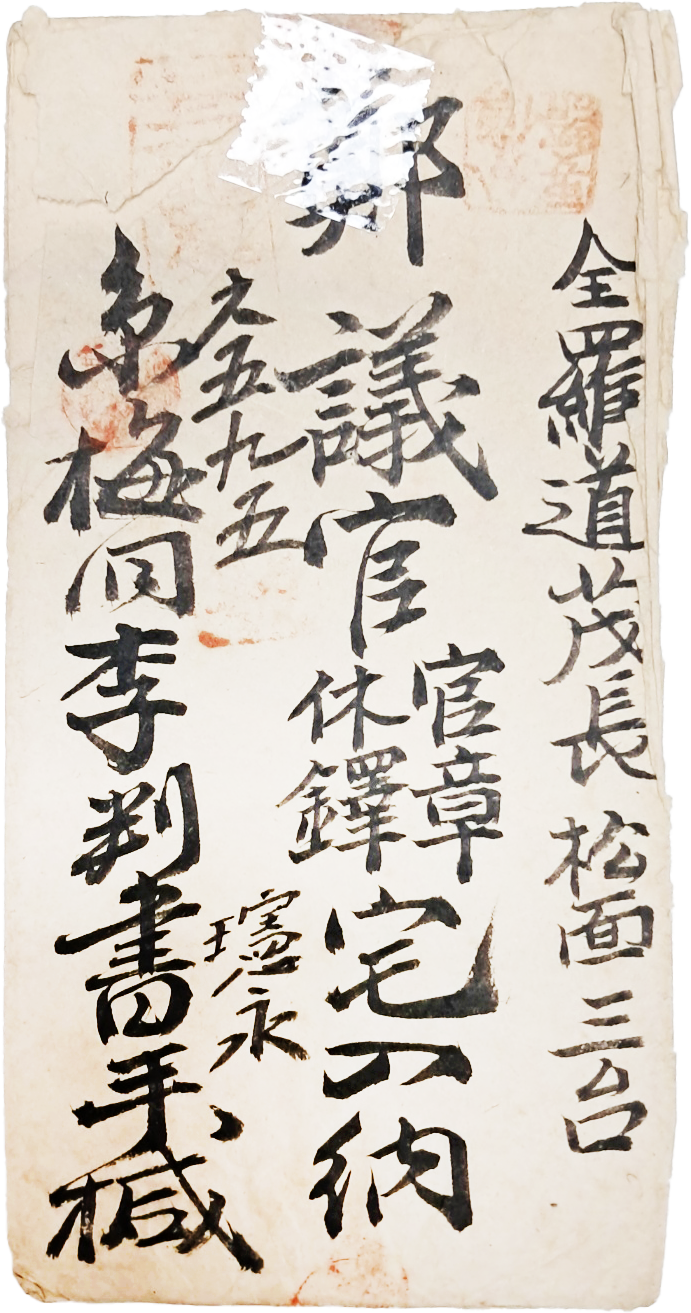 全羅道茂長松面三台
鄭議官
官章
休鐸
宅入納
五九五
永
京梅同李判書手椷